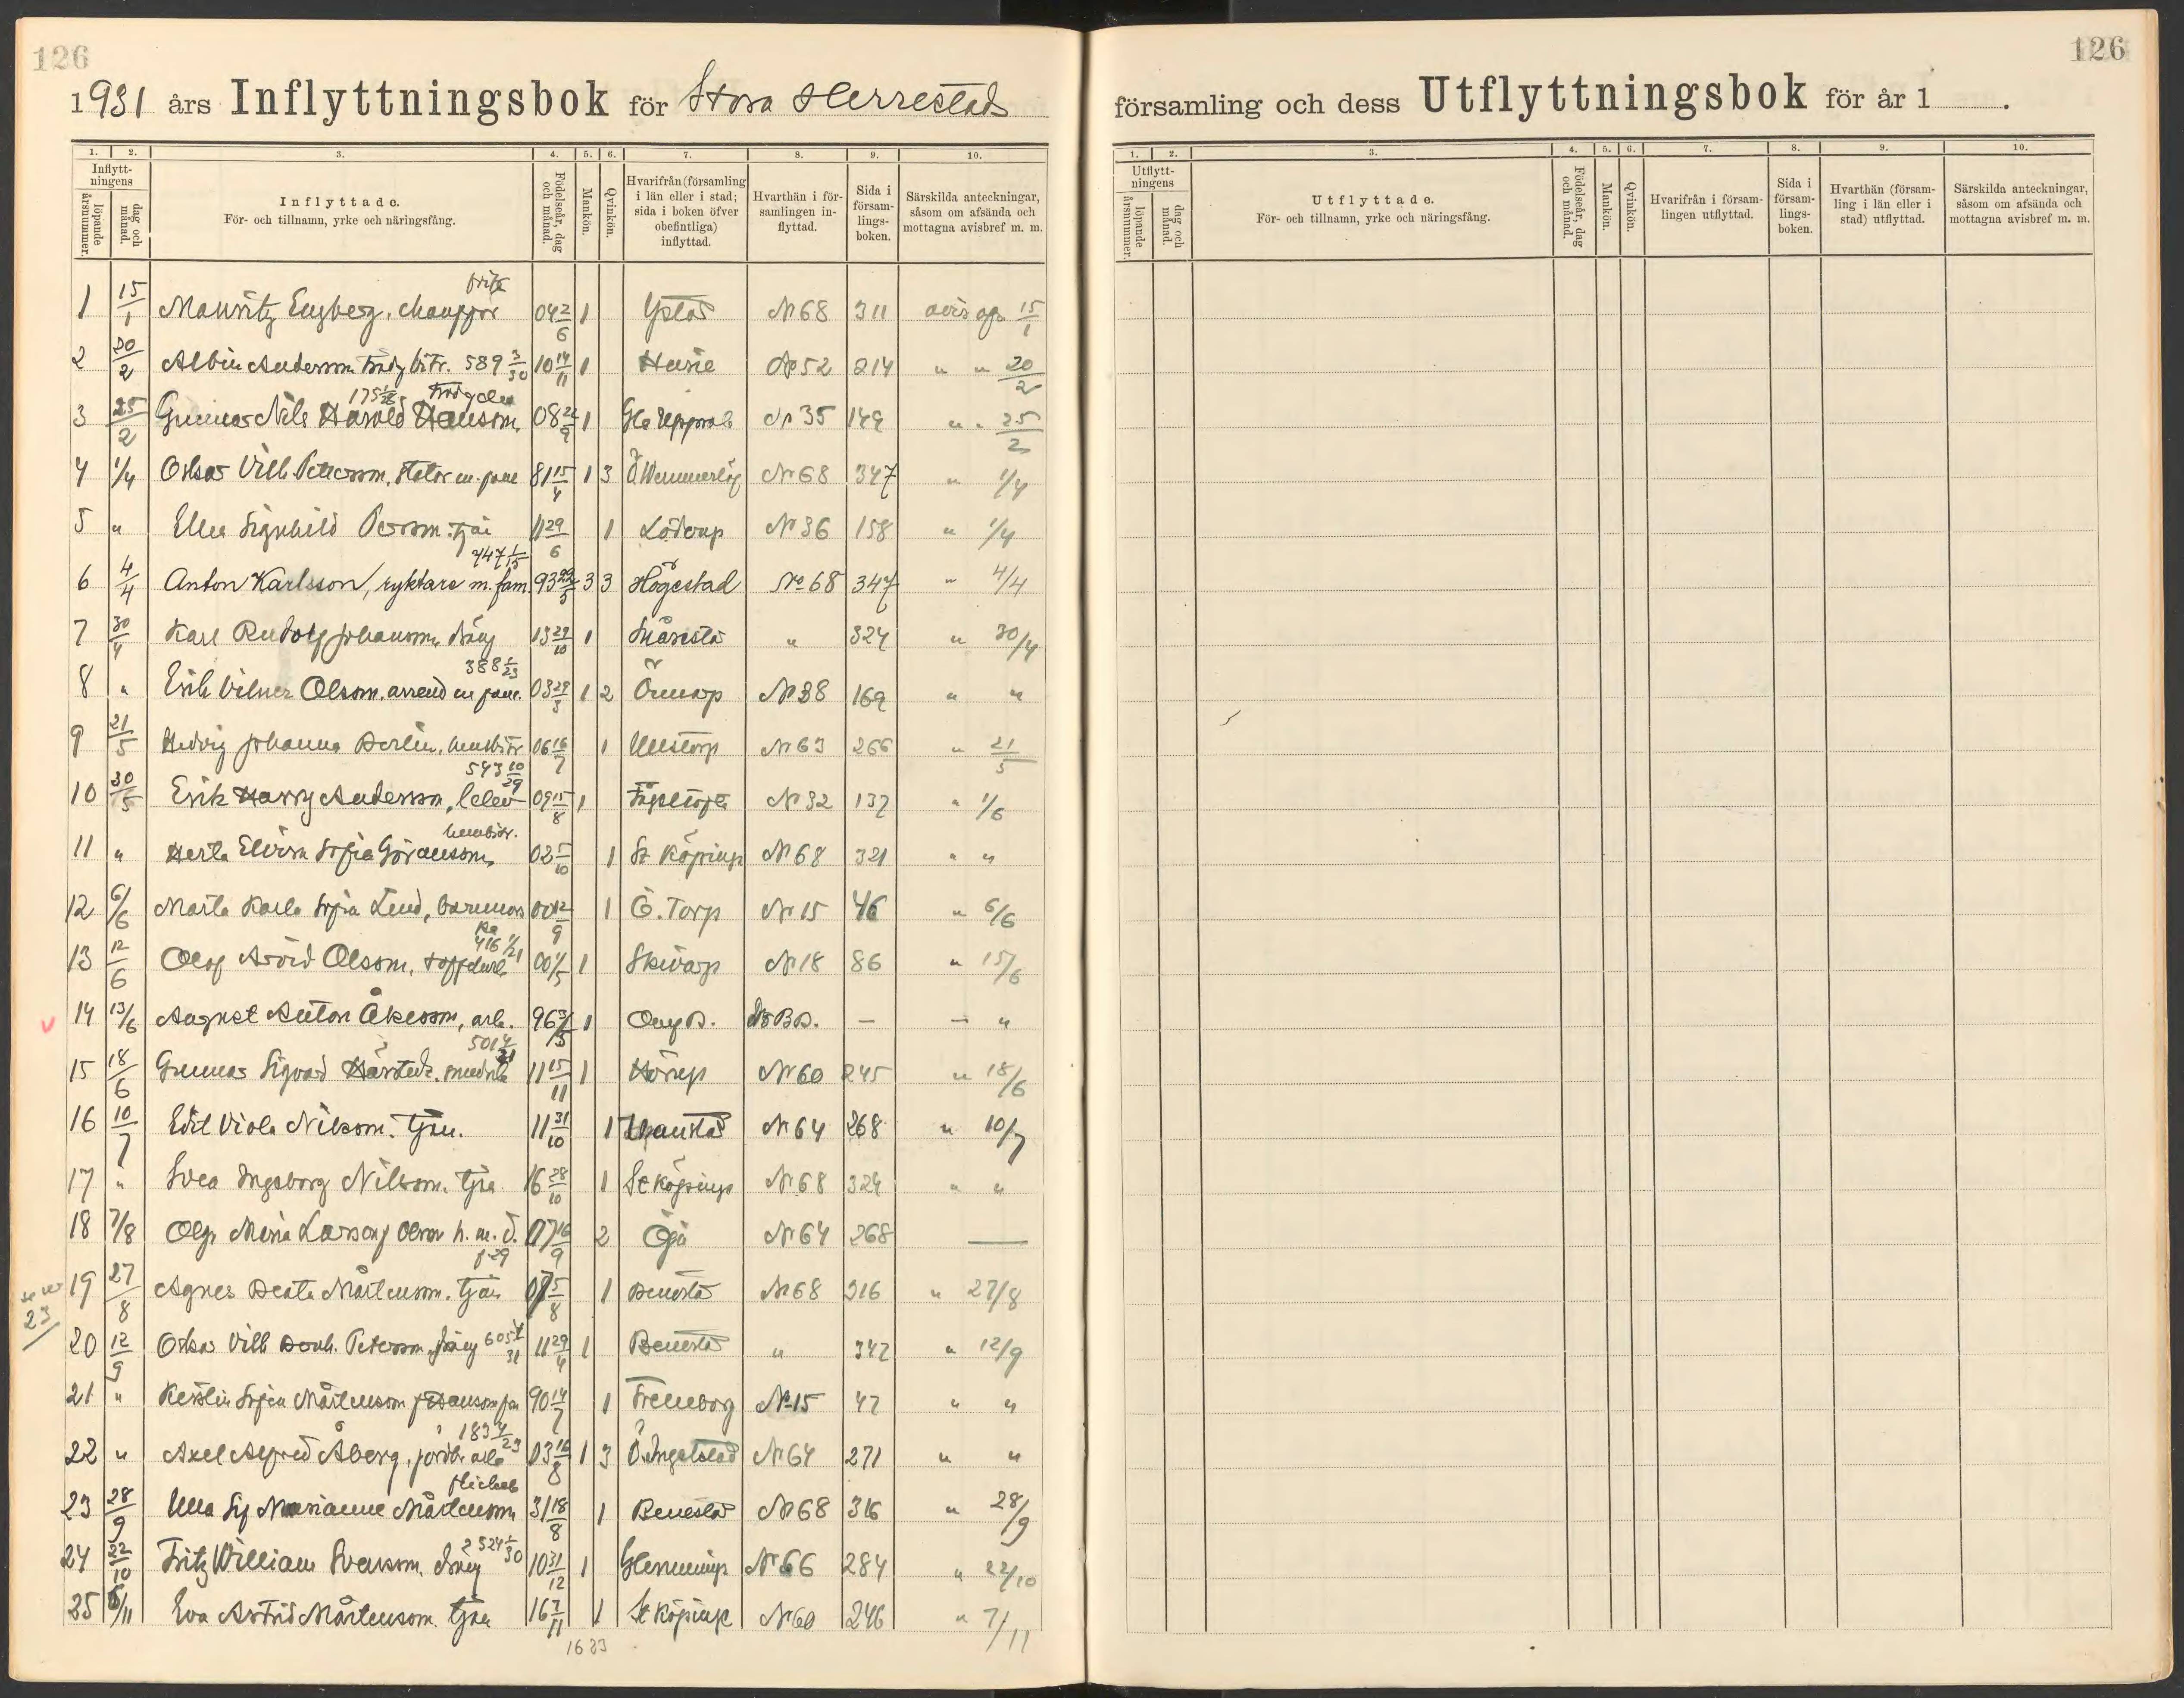 126
1931 års Inflyttningsbok för Stora Herrestads
1. 2. 3. 4. 5. 6. 7. 8. 9. 10.
Inflytt-
ningens
löpande
årsnummer.
dag och
månad.
Inflyttade.
För- och tillnamn, yrke och näringsfång.
Födelseår, dag
och månad.
Mankön.
Qvinkön.
Hvarifrån (församling
i län eller i stad;
sida i boken öfver
obefintliga)
inflyttad.
Hvarthän i för-
samlingen in-
flyttad.
Sida i
försam-
lings-
boken.
Särskilda anteckningar,
såsom om afsända och
mottagna avisbref m. m.
1 15/1 Mauritz Engberg, chaufför 04 2/6 1 Ystad N 68 311 avis af 15/1
2 20/2 Albin Andersson 589 3/30 10 14/11 1 Husie No 52 214 " " 20/2
175
3 25/2 Gunnar Nils Harold Hansson, 08 1 Gla Uppåk N 35 149 " " 25/2
4 1/4 Oskar Vilh Petersson, stator m. fam 81 15/4 1 3 Ö. Wemmerlöf Nr 68 347 " 1/4
5 " Elna Signhild Persson, tjä 11 29/6 1 Löderup No 36 158 " 1/4
747 1/15
6 4/4 Anton Karlsson, ryktare m. fam. 93 22/5 3 3 Högestad No 68 347 " 4/4
7 30/4 Karl Rudolf Johansson, dräng 13 29/10 1 Snårestad " 324 " 30/4
388 1/23
8 " Erik Vilner Olsson, arrend m fam. 03 29/3 1 2 Önnarp No 38 169 " "
9 21/5 Hedvig Johanna Berlin, hembitr 06 16/7 1 Ullstorp N 63 266 " 21/5
543 10/29
10 30/5 Erik Harry Andersson, 09 15/8 1 Fågeltofta N 32 137 " 1/6
hembitr.
11 " Herta Elvira Sofia Göransson, 02 5/10 1 St Köpinge N 68 321 " "
12 6/6 Märta Karla Sofia Lind, barnmors 00 12/9 1 Ö. Torp Nr 15 46 " 6/6
ka
416 1/21
13 12/6 Olof Arvid Olsson, 00 1/5 1 Skivarp N 18 86 " 15/6
14 13/6 August Anton Åkesson, arb. 96 3/3 1 — — "
501 4/31
15 18/6 Gunnar Sigvard Hårstedt, 11 15/11 1 Hörup Nr 60 245 " 18/6
16 10/7 Edit Viola Nilsson. tjän. 11 31/10 1 N 64 268 " 10/7
17 " Svea Ingeborg Nilsson. tjä 16 28/10 1 St Köpinge N 68 324 " "
18 7/8 Olga Maria Larsson f Olsson h. m. d. 07 16/9 2 Öja N 64 268 —
f 29
se nr
23
19 27/8 Agnes Beata Mårtensson. tjän 07 5/8 1 Benestad N 68 316 " 27/8
20 12/9 Oskar Vilh Bernh. Petersson, dräng 605 4/31 11 29/4 1 Benestad " 342 " 12/9
21 " Kerstin Sofia Mårtensson f Hansson 90 14/7 1 Trelleborg N 15 47 " "
183 4/23
22 " Axel Alfred Åberg, jordbr arb 03 16/8 1 3 Ö. Ingelstad N 64 271 " "
flickeb
23 28/9 Ulla Sif Marianne Mårtensson 31 18/8 1 Benestad N 68 316 " 28/9
24 22/10 Fritz William Svensson, dräng 2524 1/30 10 31/12 1 Glemminge N 66 284 " 22/10
25 6/11 Eva Astrid Mårtensson. tjän 16 7/11 1 St Köpinge N 60 246 " 7/11
1633
126
församling och dess Utflyttningsbok för år 1 .
1. 2. 3. 4. 5. 6. 7. 8. 9. 10.
Utflytt-
ningens
löpande
årsnummer.
dag och
månad.
Utflyttade.
För- och tillnamn, yrke och näringsfång.
Födelseår, dag
och månad.
Mankön.
Qvinkön.
Hvarifrån i försam-
lingen utflyttad.
Sida i
försam-
lings-
boken.
Hvarthän (försam-
ling i län eller i
stad) utflyttad.
Särskilda anteckningar,
såsom om afsända och
mottagna avisbref m. m.